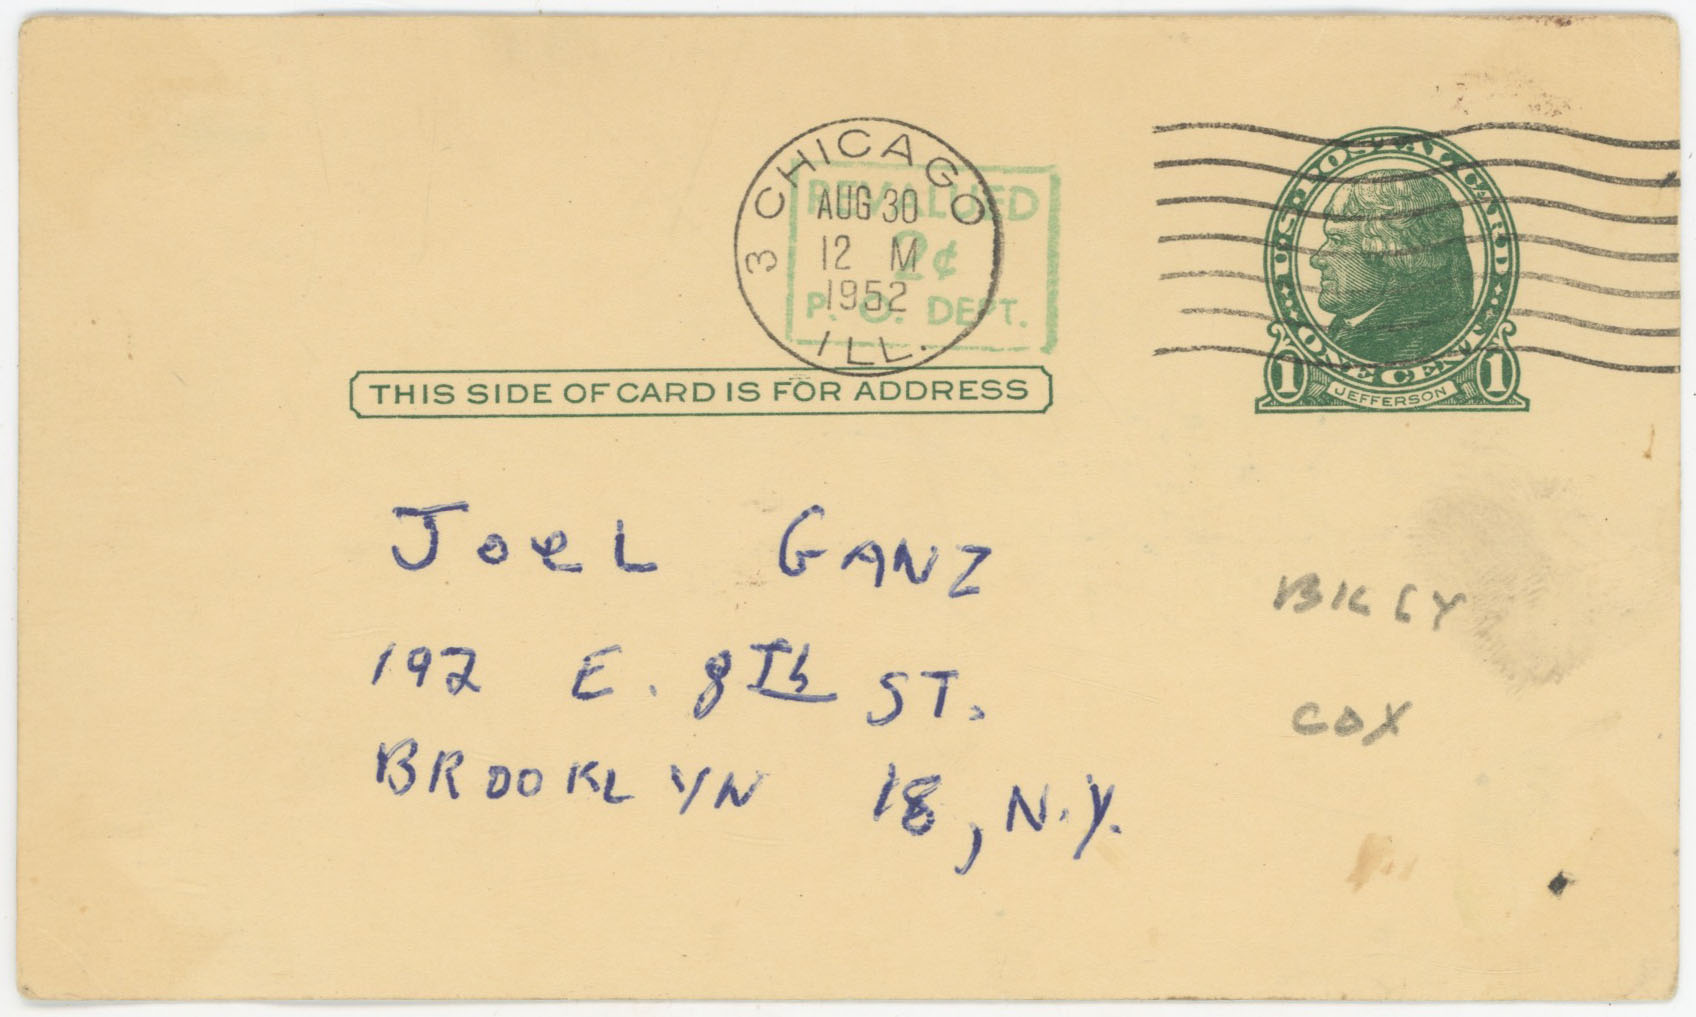 3 CHICAGO
AUG 30
12 M
1952
ILL.
REVALUED
2¢
P. O. DEPT.
U·S·POSTAL CARD
ONE CENT
1 JEFFERSON 1
THIS SIDE OF CARD IS FOR ADDRESS
JoeL GANZ
192 E. 8Th ST.
BROOKLYN 18, N.Y.
COX